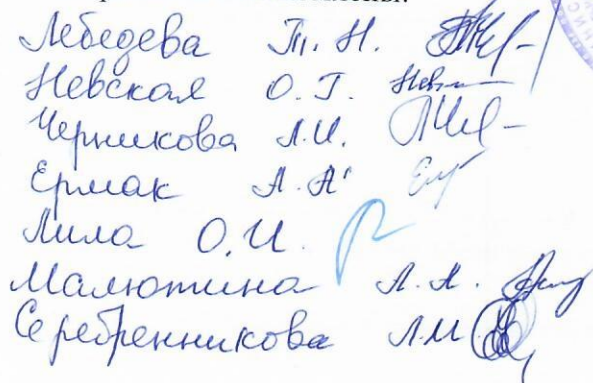 Лебедева Т. Н.
Невская О. Г. Нев
Черникова Л.И.
Ермак А. А
Лила О.И.
Малютина Л. А.
Серебренникова Л.И